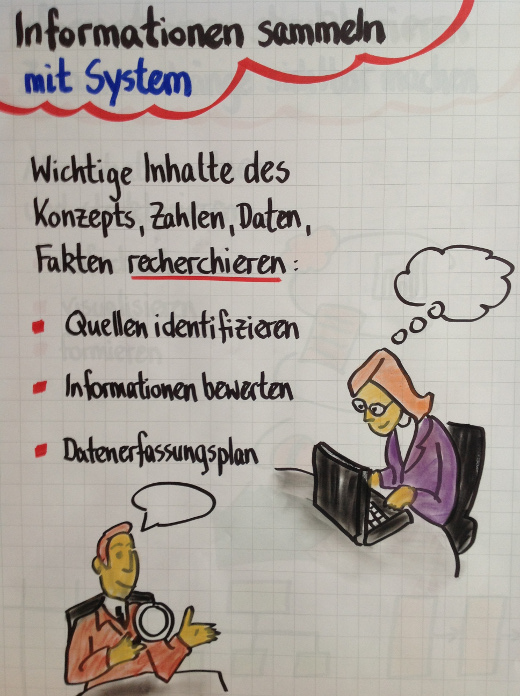 Informationen sammeln
mit System
Wichtige Inhalte des
Konzepts, Zahlen, Daten,
Fakten recherchieren:
Quellen identifizieren
Informationen bewerten
Datenerfassungsplan